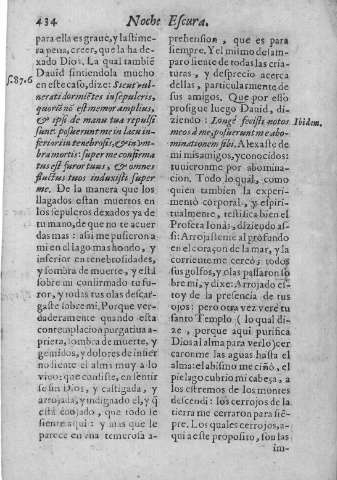 434 Noche Escura.
para ella es graue, y lastime-
ra pena, creer, que la ha de-
xado Dios. La qual tambiẽ
Dauid sintiendola mucho
en este caso, dize: Sicut vul-
nerati dormiẽtes in sepulcris,
quorũ nõ est memor amplius,
& ipsi de manu tua repulsi
sunt: posuerunt me in lacu in-
feriori in tenebrosis, & in vm-
bra mortis: super me confirma
tus est furor tuus, & omnes
fluctus tuos induxisti super
me. De la manera que los
llagados estan muertos en
los sepulcros dexados ya de
tu mano, de que no te acuer
das mas: assi me pusieron a
mi en el lago mas hondo, y
inferior en tenebrosidades,
y sombra de muerte, y està
sobre mi confirmado tu fu-
ror, y todas tus olas descar-
gaste sobre mi. Porque ver-
daderamente quando esta
contemplacion purgatiua a-
prieta, sombra de muerte, y
gemidos, y dolores de infier
no siente el alma muy a lo
viuo: que consiste, en sentir
se sin Dios, y castigada, y
arrojada, y indignado el, y q̃
està enojado, que todo le
siente aqui: y mas que le
parece en vna temerosa a-
s.87.6
prehension, que es para
siempre. Y el mismo desam-
paro siente de todas las cria-
turas, y desprecio acerca
dellas, particularmente de
sus amigos. Que por esso
prosigue luego Dauid, di-
ziendo: Longè fecisti notos
meos à me, posuerunt me abo-
minationem sibi. Alexaste de
mi mis amigos, y conocidos:
tuuieronme por abomina-
cion. Todo lo qual, como
quien tambien la experi-
mentò corporal, y espiri-
tualmente, testifica bien el
Profeta Ionàs, diziendo as-
si: Arrojasteme al profundo
en el coraçon de la mar, y la
corriente me cercò; todos
sus golfos, y olas passaron so
bre mi, y dixe: Arrojado es-
toy de la presencia de tus
ojos: pero otra vez verè tu
santo Templo (lo qual di-
ze, porque aqui purifica
Dios al alma para verlo) cer
caronme las aguas hasta el
alma: el abismo me ciñò, el
pielago cubrio mi cabeça, a
los estremos de los montes
descendi: los cerrojos de la
tierra me cerraron para siẽ-
pre. Los quales cerrojos, a-
qui a este proposito, son las
im-
Ibidem.